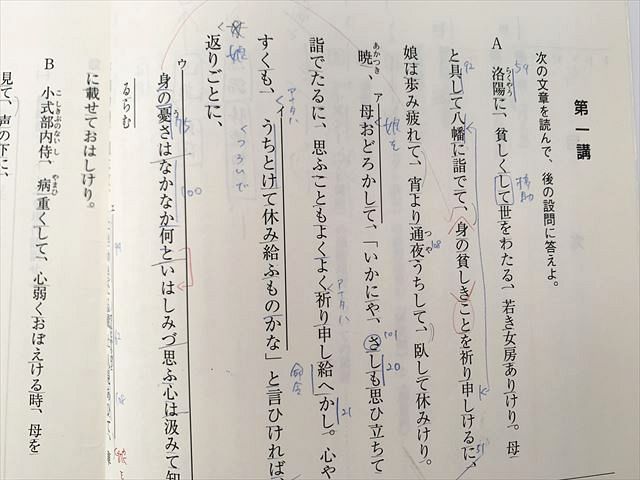 第一講
次の文章を読んで、後の設問に答えよ。
A 洛陽に、貧しくして世をわたる、若き女房ありけり。母
らくやう
と具して八幡に詣でて、身の貧しきことを祈り申しけるに、
娘は歩み疲れて、宵より通夜うちして、臥して休みけり。
つや
暁、母おどろかして、「いかにや、さしも思ひ立ちて
あかつき
ア
詣でたるに、思ふこともよくよく祈り申し給へかし。心や
すくも、うちとけて休み給ふものかな」と言ひければ、
イ
返りごとに、
身の憂さはなかなか何といはしみづ思ふ心は汲みて知
う
ウ
るらむ
に載せておはしけり。
B 小式部内侍、病重くして、心弱くおぼえける時、母を
こしきぶのないし
やまひ
見て、声の下に、
59
92
補助
108
娘を
101
20
アナタハ
21
命令
アナタハ
娘
75
100